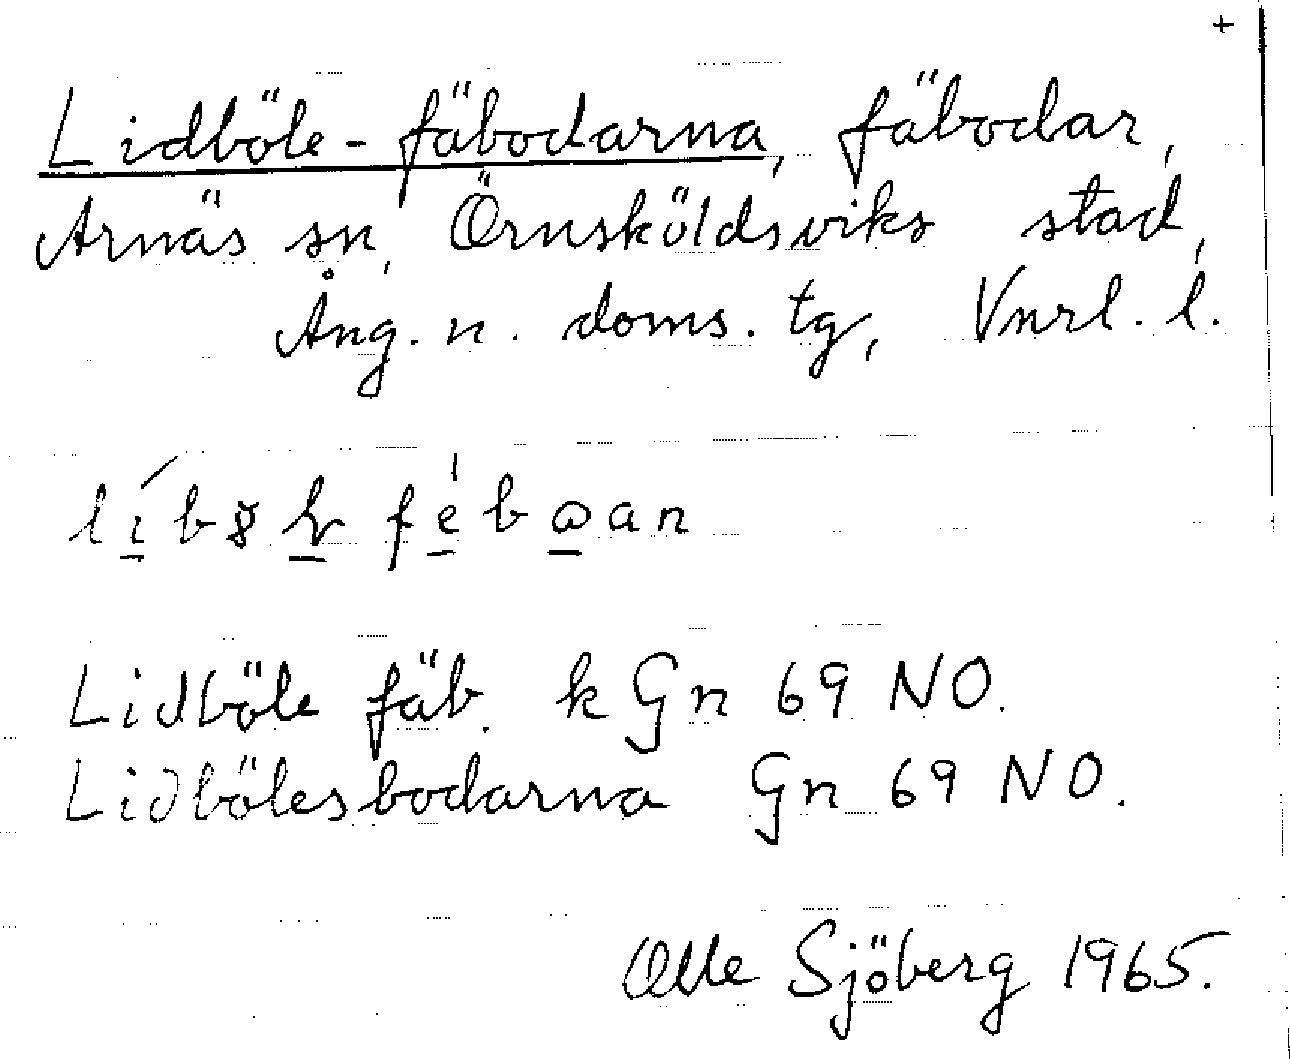 +
Lidböle-fäbodarna, fäbodar,
Arnäs sn, Örnsköldsviks stad,
Ång. n. doms. tg, Vnrl. l.
Lidböle fäb. k Gn 69 NO.
Lidbölesbodarna Gn 69 NO.
Olle Sjöberg 1965.